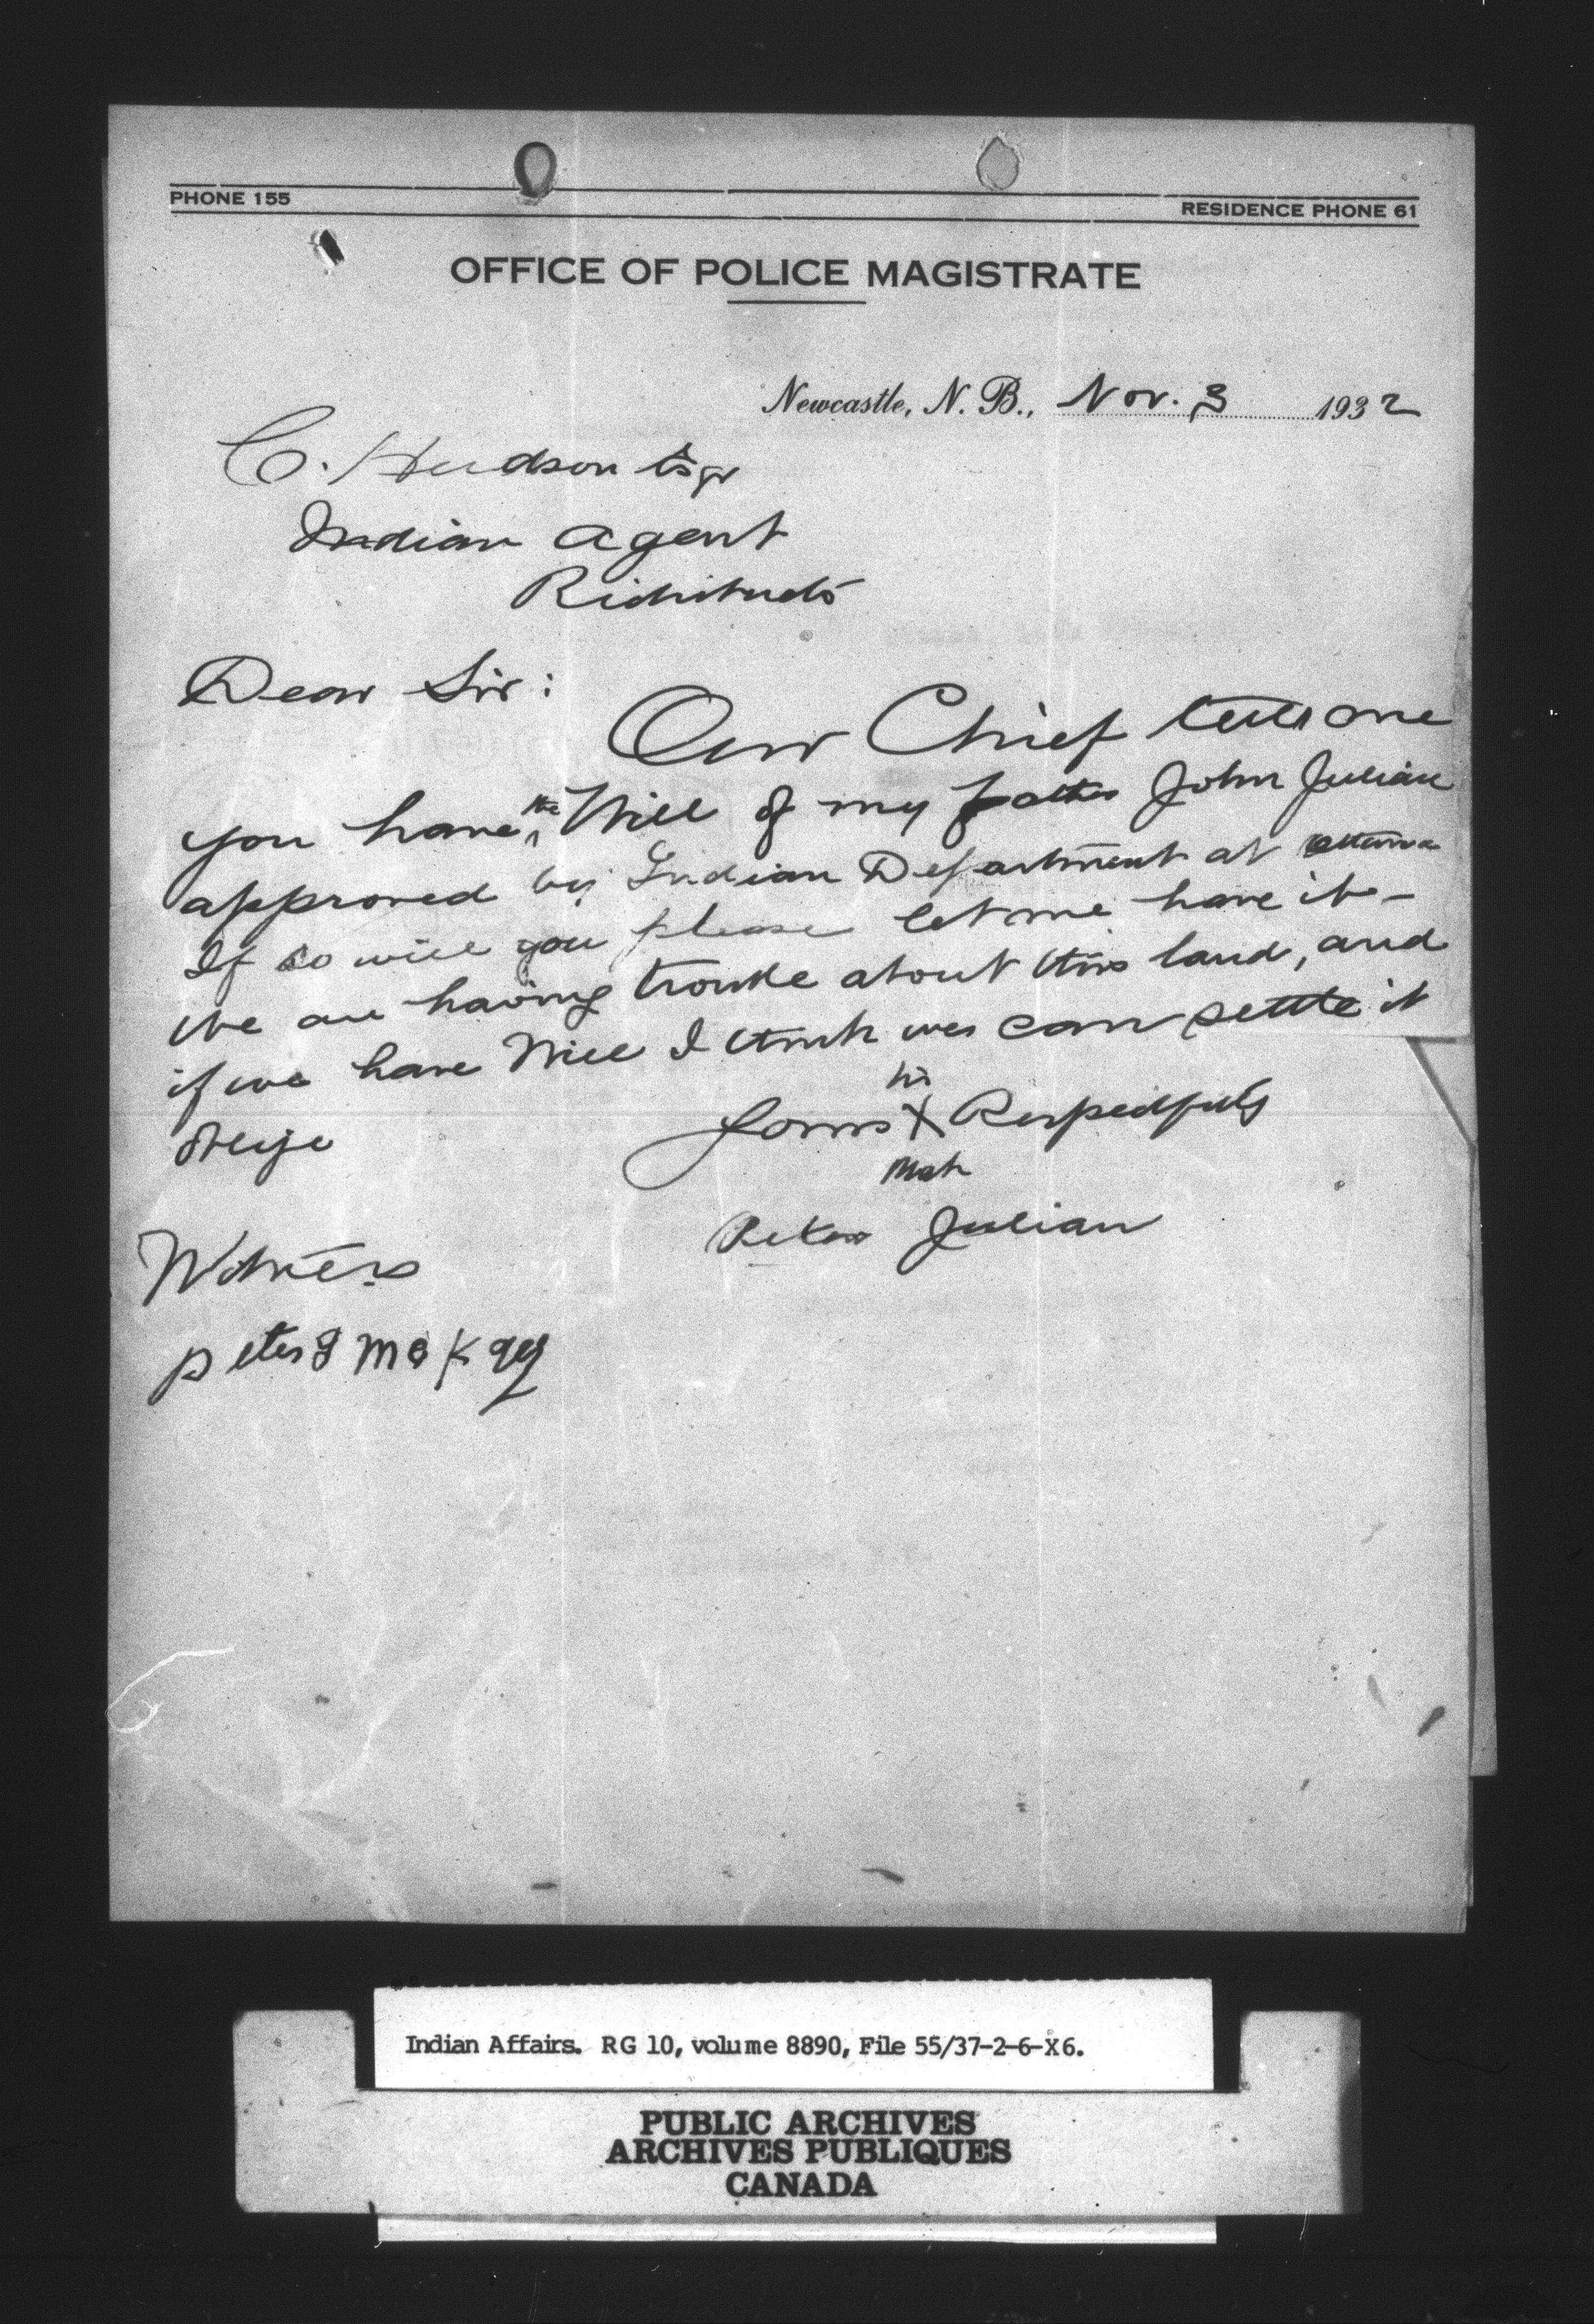 PHONE 155
RESIDENCE PHONE 61
OFFICE OF POLICE MAGISTRATE
Newcastle, N. B., Nov. 3 1932
C. Hudson Esqr
Indian Agent
Richibucto
Dear Sir:
Our Chief tells me
you have the Will of my father John Julian
approved by Indian Department at Ottawa
If so will you please let me have it-
We are having trouble about this land, and
if we have Will I think we can settle it
his
Yours X Respectfully
Mark
Peter Julian
Witness
Peter
Indian Affairs. RG 10, volume 8890, File 55/37-2-6-X6.
PUBLIC ARCHIVES
ARCHIVES PUBLIQUES
CANADA